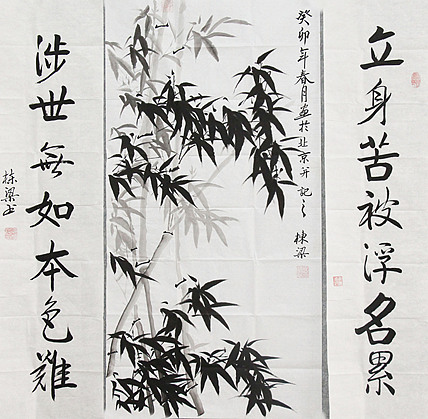 立身苦被浮名累
癸卯年春月画於北京并记之
栋梁
涉世無如本色難
栋梁书